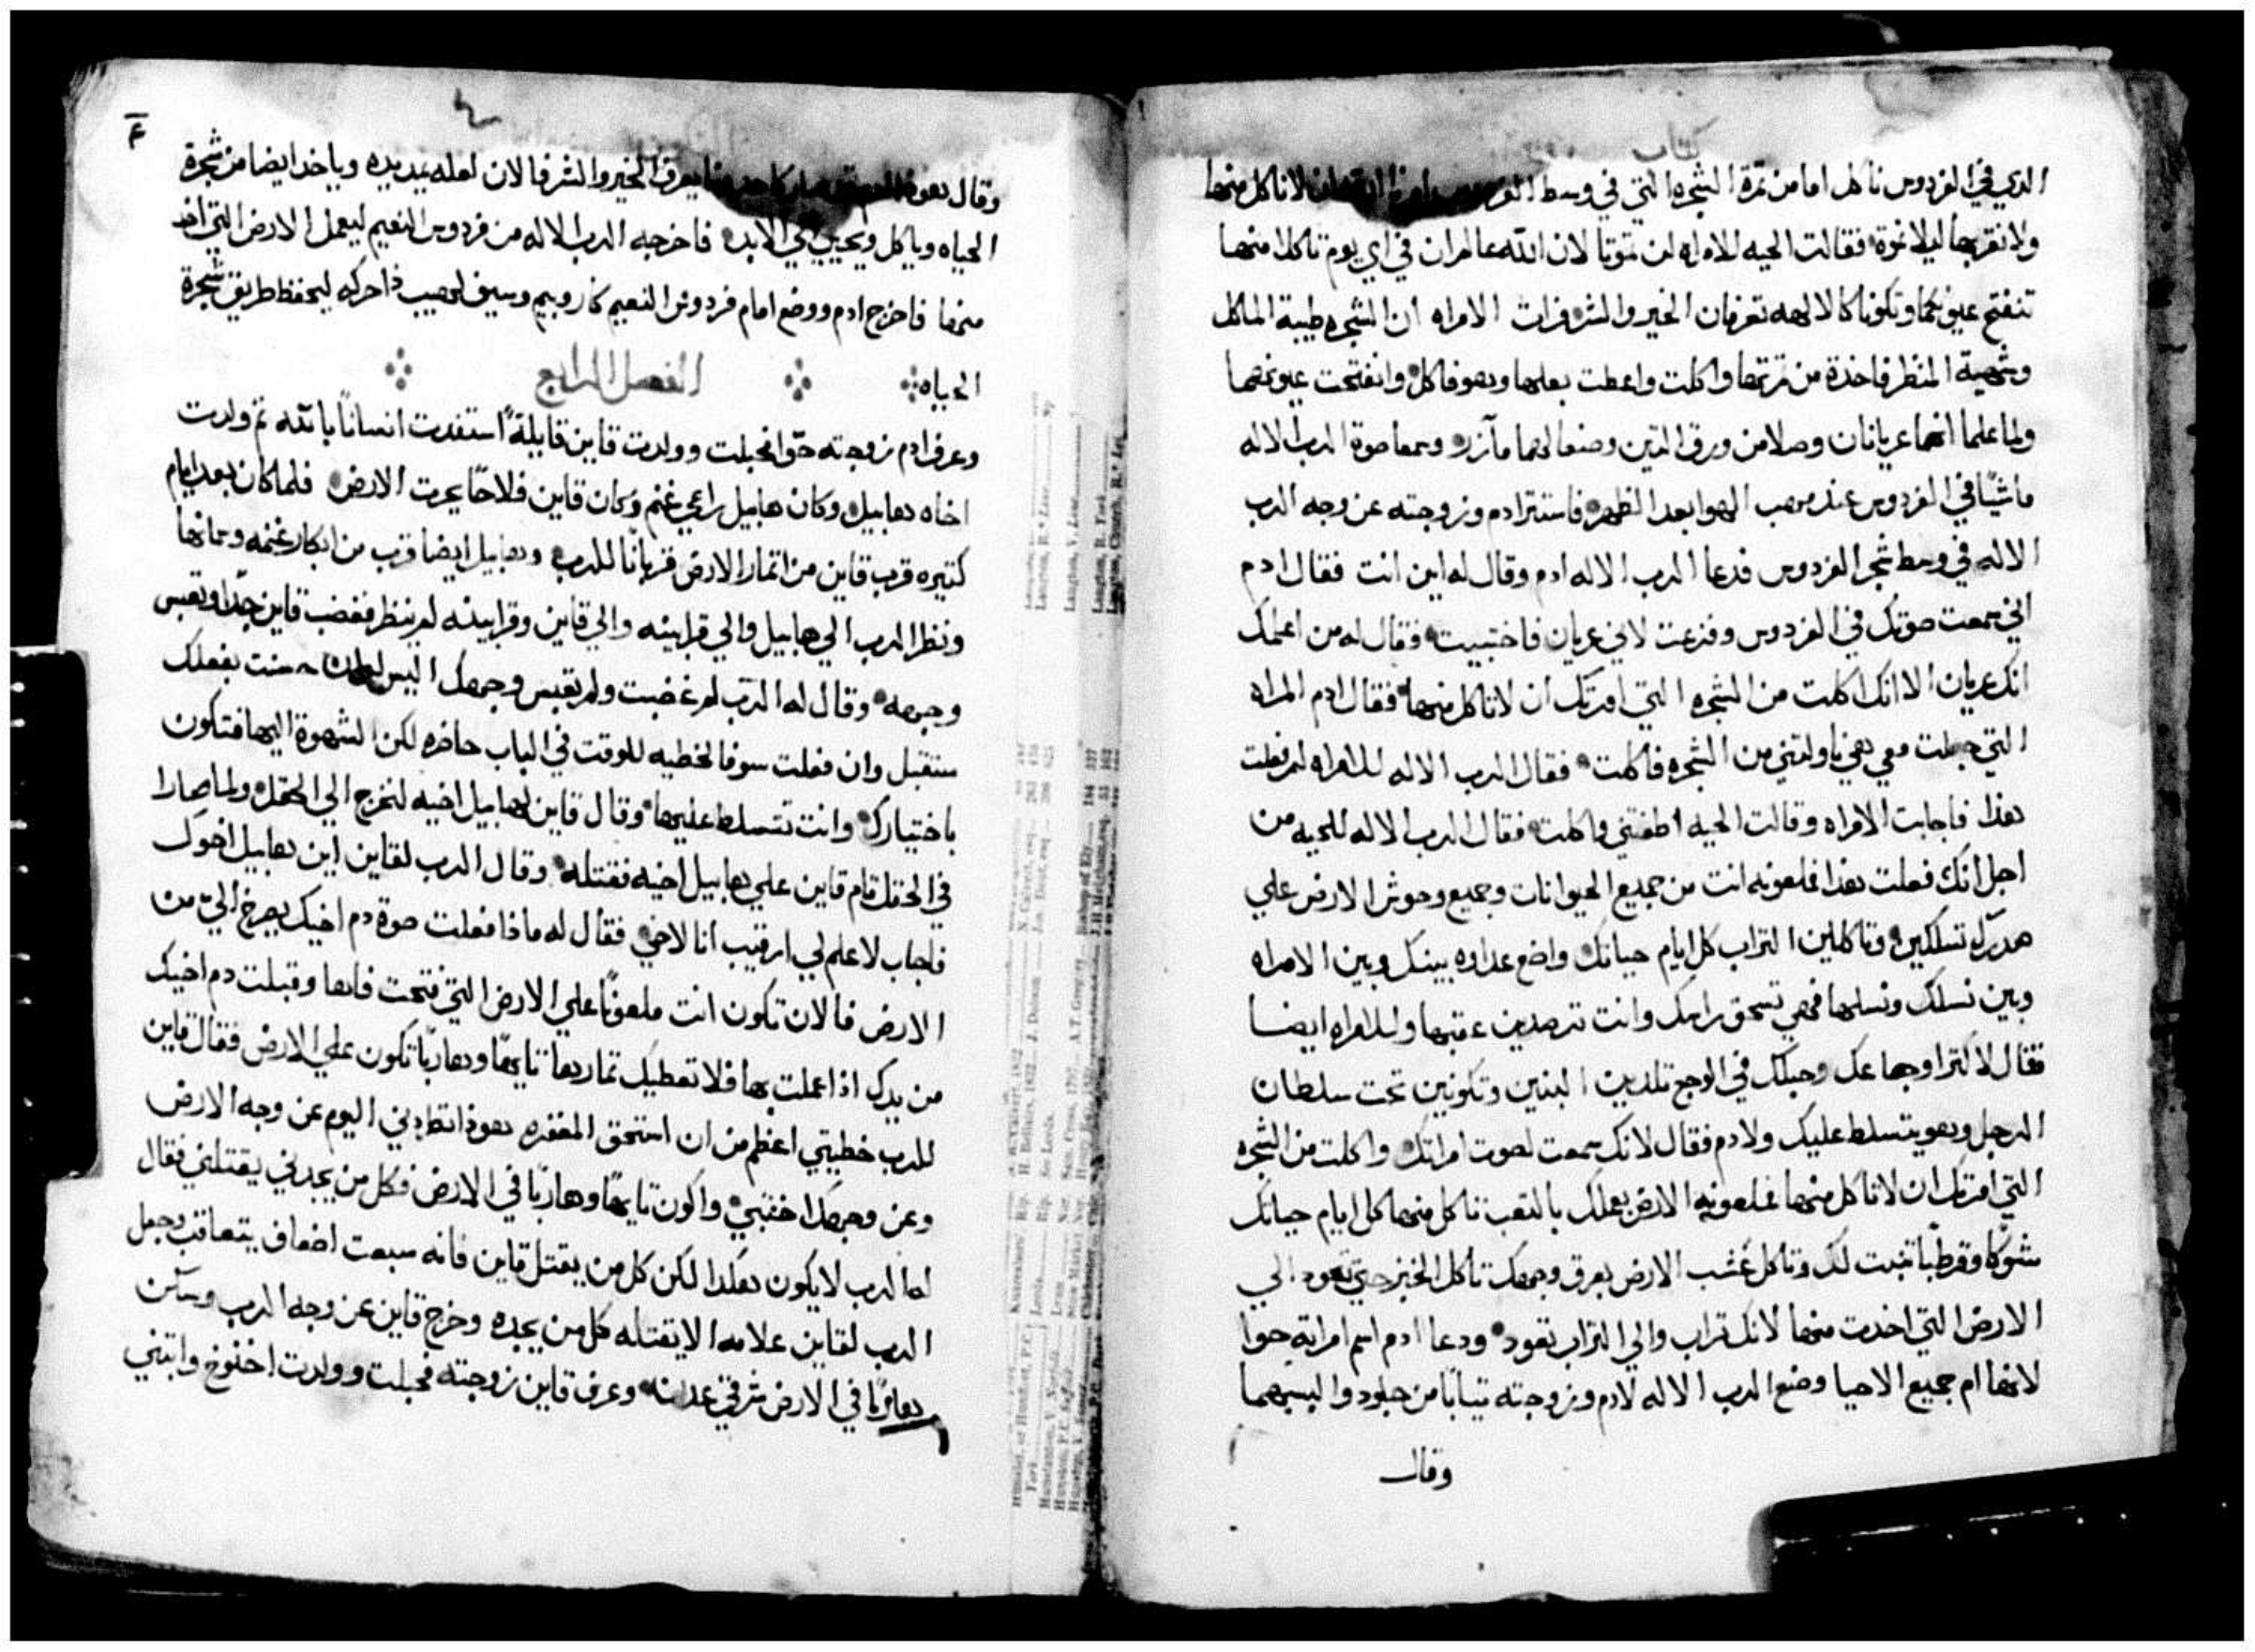 كتاب
الذي في الفردوس ناكل اما من تمرة الشجره التي في وسط لانا كل منها
ولا نقربها ليلا نموة فقالت الحيه للامراه لن تموتا لان الله عالم ان في اي يوم تاكلا منها
تنفتح عيونكما وتكونا كالالهه تعرفان الخير والشر فرات الامراه ان الشجره طيبة الماكل
وشهية المنظر فاخذة من تمرتها واكلت واعطت بعلها وهو فاكل وانفتحت عيونهما
ولما علما انهما عريانان وصلا من ورق التين وصنعا لهما مآزر وسمعا صوة الرب الاله
ماشيًا في الفردوس عند مهب الهوا بعد الظهر فاستتر ادم وزوجته عن وجه الرب
الاله في وسط شجر الفردوس فدعا الرب الاله ادم وقال له اين انت فقال ادم
اني سمعت صوتك في الفردوس وفزعت لاني عريان فاختبيت فقال له من اعلمك
انك عريان الا انك اكلت من الشجره التي امرتك ان لا تاكل منها فقال ادم المراه
التي جعلت معي هي ناولتني من الشجره فاكلت فقال الرب الاله للامراه لم فعلت
هذا فاجابت الامراه وقالت الحيه اطغتني واكلت فقال الرب الاله للحيه من
اجل انك فعلت هذا فملعونه انت من جميع الحيوانات وجميع وحوش الارض علي
صدرك تسلكين وتاكلين التراب كل ايام حياتك واضع عداوه بينك وبين الامراه
وبين نسلك ونسلها فهي تسحق راسك وانت ترصدين عقبها وللامراه ايضا
فقال لاكثر اوجاعك وحبلك في الوجع تلدين البنين وتكونين تحت سلطان
الرجل وهو يتسلط عليك ولادم فقال لانك سمعت لصوت امراتك واكلت من الشجره
التي امرتك ان لا تاكل منها فملعونه الارض بعملك بالتعب تاكل منها كل ايام حياتك
شوكا وقرطبا تنبت لك وتاكل عشب الارض بعرق وجهك تاكل الخبز حتي تعود الي
الارض التي اخدت منها لانك تراب والي التراب تعود ودعا ادم اسم امراته حوا
لانها ام جميع الاحيا وصنع الرب الاله لادم وزوجته تيابًا من جلود والبسهما
وقال
وقال هوذا يعرف الخير والشر فالان لعله يمد يده وياخد ايضا من شجرة
الحياه وياكل ويحيي الي الابد فاخرجه الرب الاله من فردوس النعيم ليعمل الارض التي اخد
منها فاخرج ادم ووضع امام فردوس النعيم كاروبيم وسيف لهيب ذا حركه ليحفظ طريق شجرة
الحياه الفصل الرابع
وعرف ادم زوجته حوّا فحبلت وولدت قاين قايلةً استفدت انسانًا بالله تم ولدت
اخاه هابيل وكان هابيل راعي غنم وكان قاين فلاحًا يحرت الارض فلما كان بعد ايام
كتيره قرب قاين من اتمار الارض قربانًا للرب وهابيل ايضا قرب من ابكار غنمه وسمانها
ونظر الرب الي هابيل والي قرابينه والي قاين وقرابينه لم ينظر فغضب قاين جدًا وتعبس
وجهه وقال له الرب لم غضبت ولم تعبس وجهك اليس ان حسنت بفعلك
ستقبل وان فعلت سوفا لخطيه للوقت في الباب حاضره لكن الشهوة اليها فتكون
باختيارك وانت تتسلط عليها وقال قاين لهابيل اخيه لنخرج الي الحقل ولما صارا
في الحقل قام قاين علي هابيل اخيه فقتله وقال الرب لقاين اين هابيل اخوك
فاجاب لا علم لي ارقيب انا لاخي فقال له ماذا فعلت صوة دم اخيك يصرخ اليّ من
الارض فالان تكون انت ملعونًا علي الارض التي فتحت فاها وقبلت دم اخيك
من يدك اذا عملت بها فلا تعطيك تمارها تايهًا وهاربًا تكون علي الارض فقال قاين
للرب خطيتي اعظم من ان استحق المغفره هوذا تطردني اليوم عن وجه الارض
وعن وجهك اختبي واكون تايهًا وهاربًا في الارض فكل من يجدني يقتلني فقال
له الرب لا يكون هكدا لكن كل من يقتل قاين فانه سبعت اضعاف يتعاقب وجعل
الرب لقاين علامه الا يقتله كل من يجده وخرج قاين عن وجه الرب وسكن
هاربًا في الارض شرقي عدن وعرف قاين زوجته فحبلت وولدت اخنوخ وابتني